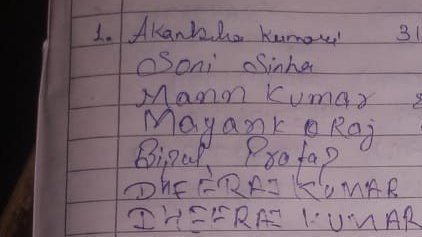 1. Akanksha Kumari 31
Soni Sinha
Mann Kumar
Mayank Raj
Pratap
DHEERAJ KUMAR
DHEERAJ KUMAR